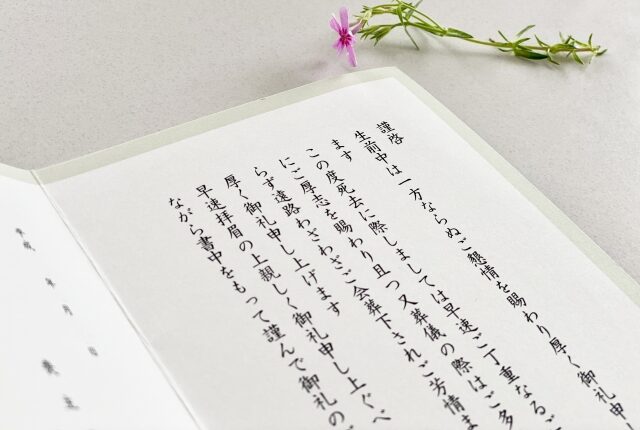 謹啓
生前中は一方ならぬご懇情を賜わり厚く御礼申
ます
この度死去に際しましては早速ご丁重なるご
にご厚志を賜わり且つ又葬儀の際はご多
らず遠路わざわざご会葬下されご芳情ま
厚く御礼申し上げます
早速拝眉の上親しく御礼申し上ぐべ
ながら書中をもって謹んで御礼のご